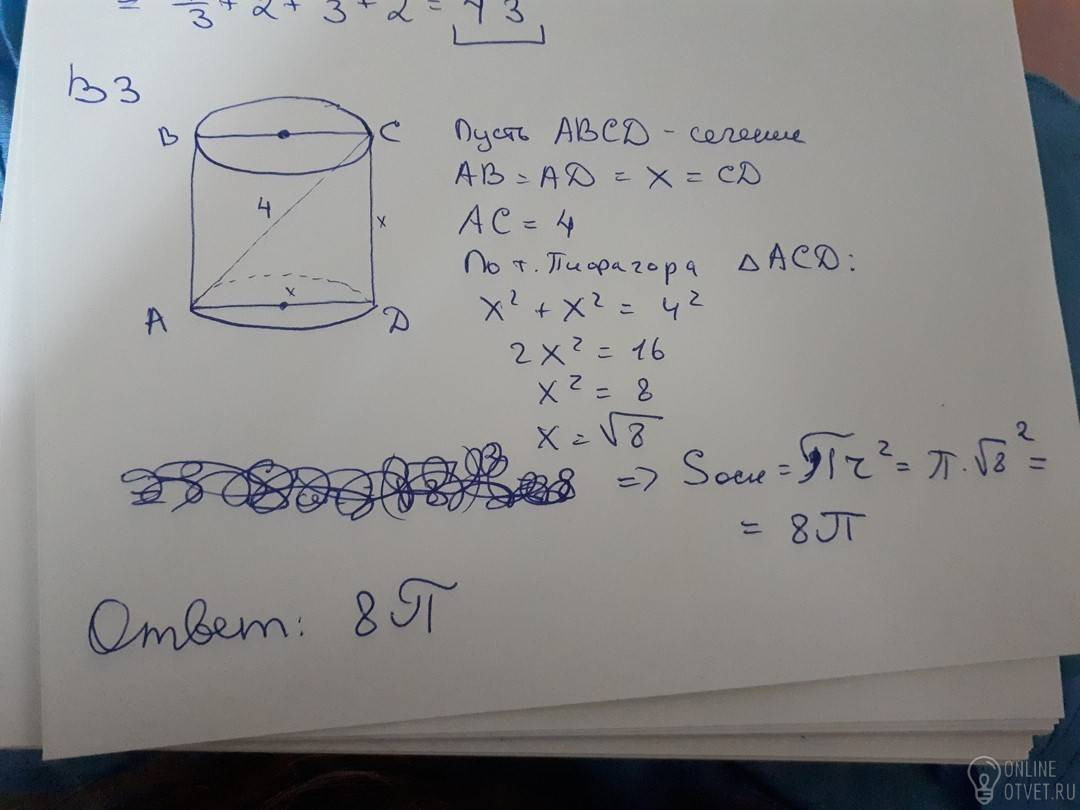 = /3 + 2 + 3 + 2 = 73
В3
B C
4 x
x
A D
Пусть ABCD - сечение
AB = AD = x = CD
AC = 4
По т. Пифагора △ACD:
x² + x² = 4²
2x² = 16
x² = 8
x = √8
=> Sосн = πr² = π·√8² =
= 8π
Ответ: 8π
ONLINE
OTVET.RU